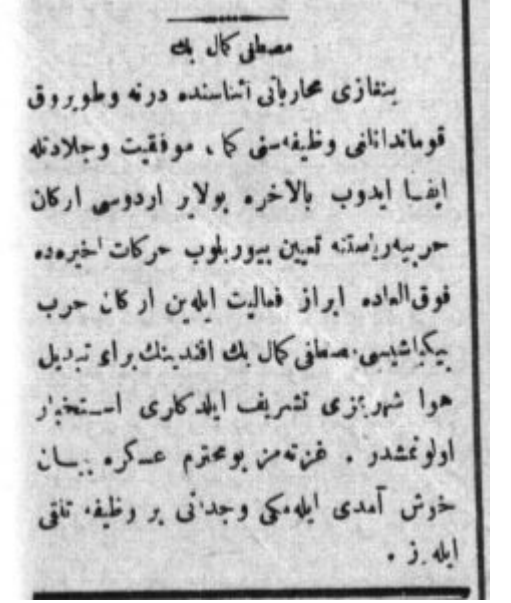 مصطفى كمال بك
بنغازى محارباتى اثناسنده درنه وطوبروق
قوماندانلغى وظيفه‌سنى كمال موفقيت وجلادتله
ايفا ايدوب بالاخره بولاير اردوسى اركان
حربيه رياستنه تعيين بيوريلوب حركات اخيره‌ده
فوق العاده ابراز فعاليت ايله‌ين اركان حرب
بيكباشيسى مصطفى كمال بك افندينك براى تبديل
هوا شهرمزى تشريف ايلدكارى استخبار
اولونمشدر . غزته‌مز بو محترم عسكره بيان
خوش آمدى ايله‌مكى وجدانى بر وظيفه تلقى
ايله‌رز .